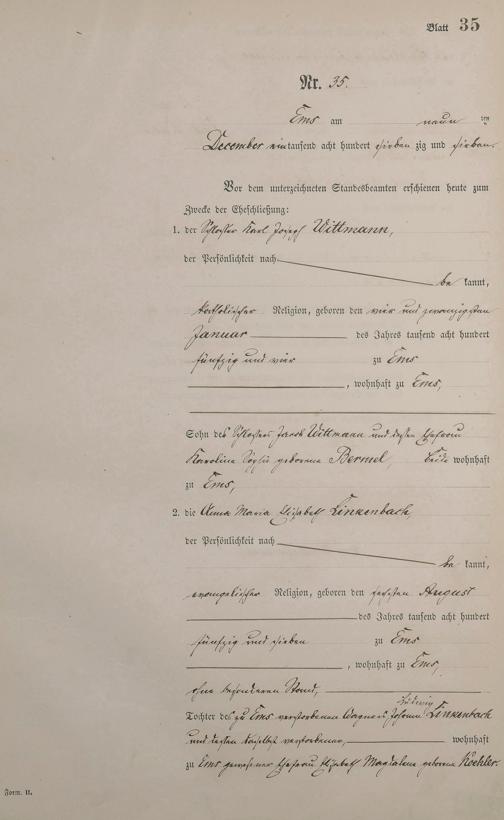 Blatt 35
Nr. 35.
Ems am neun ten
December eintausend acht hundert sieben zig und sieben.
Vor dem unterzeichneten Standesbeamten erschienen heute zum
Zwecke der Eheschließung:
1. der Schlosser Karl Joseph Wittmann,
der Persönlichkeit nach
be kannt,
katholischer Religion, geboren den vier und zwanzigsten
Januar des Jahres tausend acht hundert
fünfzig und vier zu Ems
, wohnhaft zu Ems,
Sohn des Schlossers Jacob Wittmann und dessen Ehefrau
Karolina Sophie geborene Bermel, beide wohnhaft
zu Ems,
2. die Anna Maria Elisabeth Linkenbach,
der Persönlichkeit nach
be kannt,
evangelischer Religion, geboren den sechsten August
des Jahres tausend acht hundert
fünfzig und sieben zu Ems
, wohnhaft zu Ems,
ohne besonderen Stand,
Ludwig
Tochter des zu Ems verstorbenen Wagners Johann Linkenbach
und dessen daselbst verstorbenen, wohnhaft
zu Ems gewesener Ehefrau Elisabeth Magdalene geborene Koehler.
Form. II.